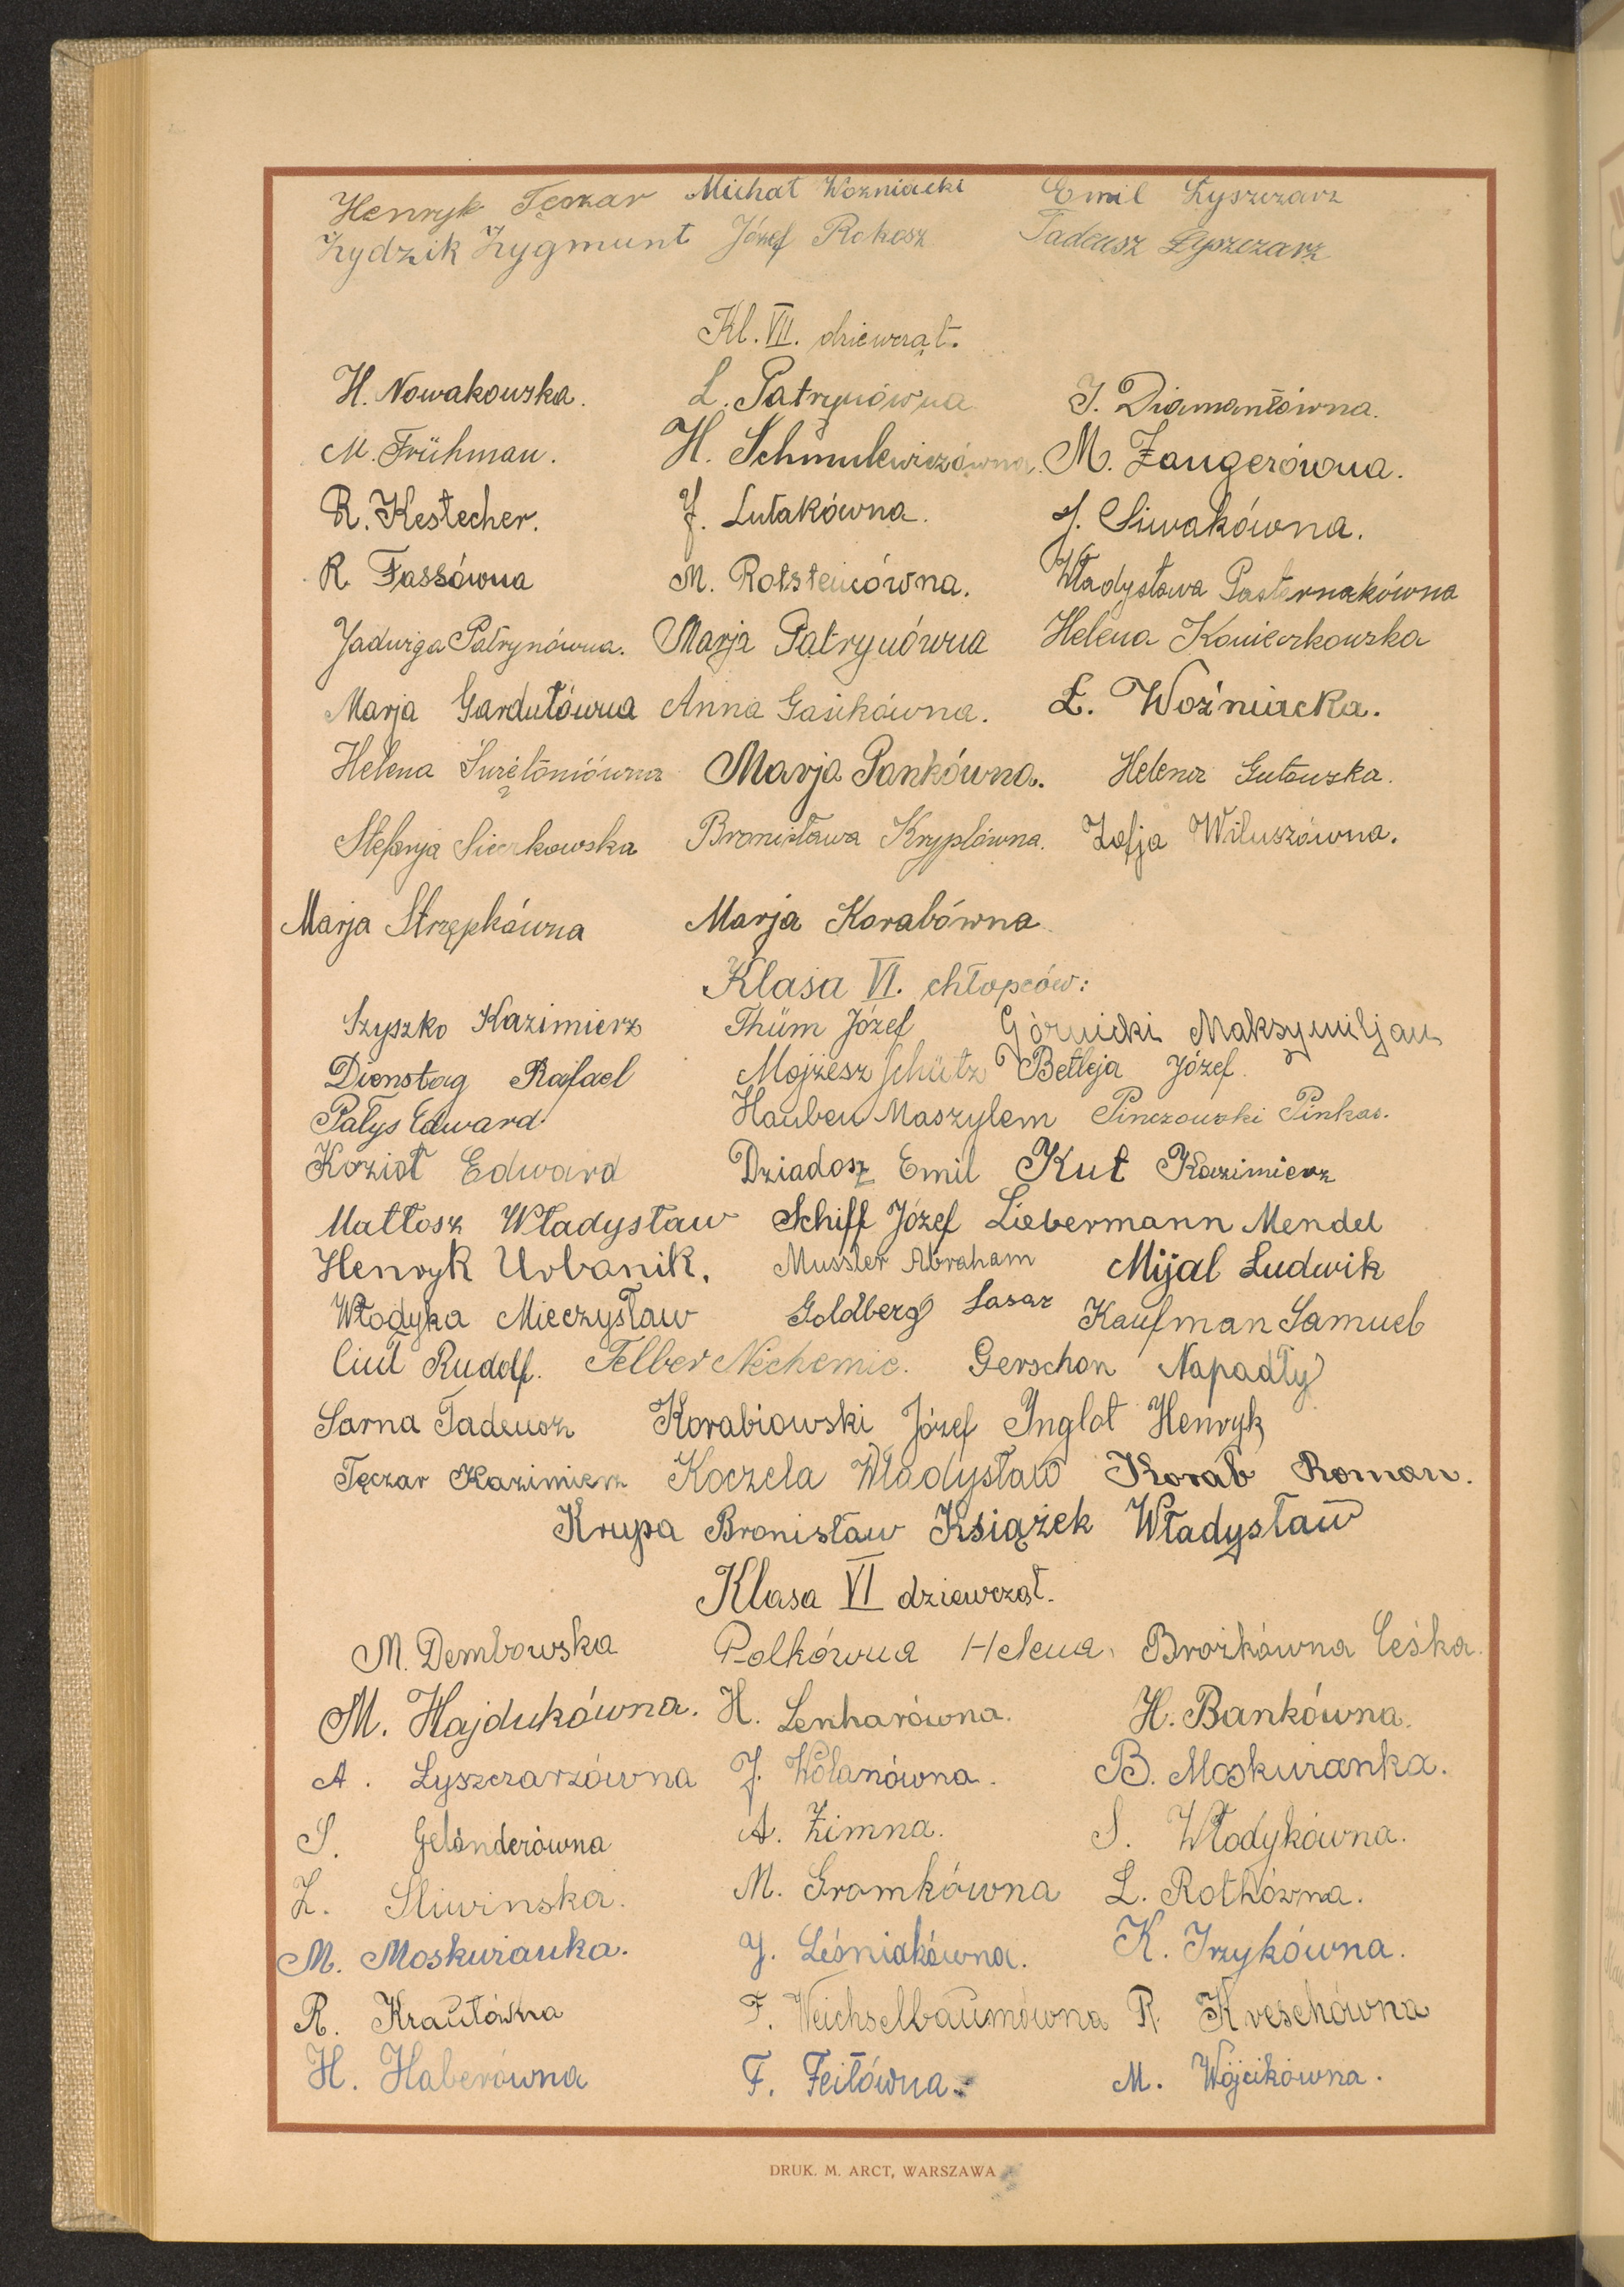 Henryk Tęczar Michał Wozniacki Emil Łyszczarz
Żydzik Zygmunt Józef Rokosz Tadeusz Łyszczarz
Kl. VII. dziewcząt.
H. Nowakowska. L. Patrynówna J. Diamantówna.
M. Frühman. H. Schmulewiczówna. M. Zangerówna.
R. Kestecher. J. Lutakówna. J. Siwakówna.
R. Fassówna M. Rotsteinówna. Władysława Pasternakówna
Jadwiga Patrynówna. Marja Patrynówna Helena Konieczkowska
Marja Gardułówna Anna Gasikówna. Ł. Woźniacka.
Helena Marja Pankówna. Helena Gutowska.
Stefanja Sieczkowska Bronisława Kryplówna. Zofja Wiluszówna.
Marja Strzępkówna Marja Korabówna
Klasa VI. chłopców:
Szyszko Kazimierz Thüm Józef Górnicki Maksymiljan
Dienstag Rafael Mojżesz Schütz Betleja Józef.
Patys Edward Hauben Maszylem Pinczowski Pinkas.
Kozioł Edward Dziadosz Emil Kut Kazimierz
Matłosz Władysław Schiff Józef Liebermann Mendel
Henryk Urbanik. Mussler Abraham Mijal Ludwik
Włodyka Mieczysław Goldberg Lasar Kaufman Samuel
Ciuł Rudolf. Felber Nechemie. Gerschon Napadły
Sarna Tadeusz Korabiowski Józef Inglot Henryk
Tęczar Kazimierz Koczela Władysław Korab Roman.
Krupa Bronisław Książek Władysław
Klasa VI dziewcząt.
M. Dembowska Polkówna Helena. Brożkówna Ceśka.
M. Hajdukówna. H. Lenharówna. H. Bankówna.
A. Łyszczarzówna J. Wolanówna. B. Moskwianka.
S. Geländerówna A. Zimna. S. Włodykówna.
Z. Sliwinska. M. Gromkówna L. Rothówna.
M. Moskwianka. J. Leśniakówna. K. Irzykówna.
R. Krautówna F. Weichselbaumówna R. Kreschówna
H. Haberówna F. Feitówna. M. Wójcikówna.
DRUK. M. ARCT, WARSZAWA